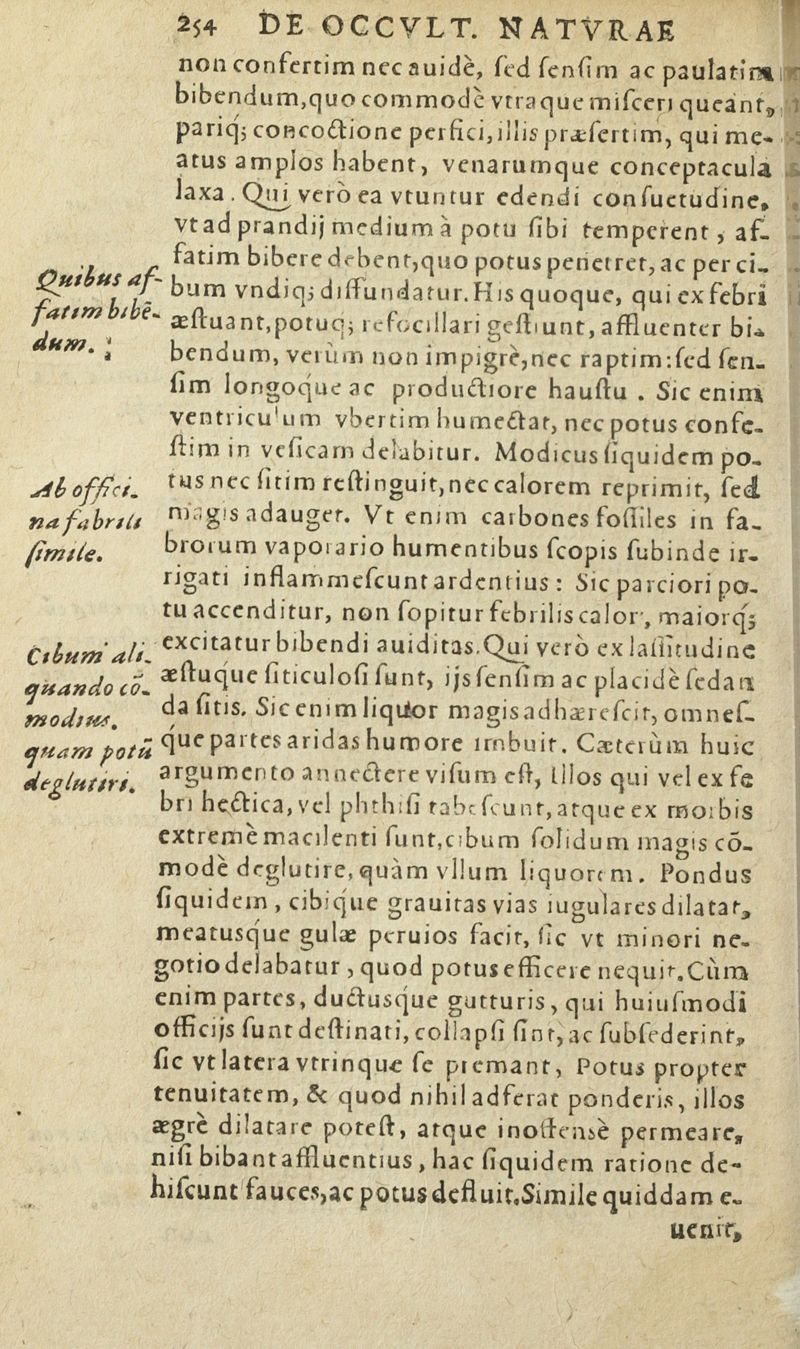 254 DE OCCVLT. NATVRAE
non confertim nec auidè, ſed ſenſim ac paulatim
bibendum,quo commodè vtraque miſceri queant,
pariq; concoctione perfici,illis præſertim, qui me-
atus amplos habent, venarumque conceptacula
laxa. Qui verò ea vtuntur edendi conſuetudine,
vt ad prandij medium à potu ſibi temperent, af-
fatim bibere debent,quo potus penetret, ac per ci-
bum vndiq; diffundatur. His quoque, qui ex febri
æſtuant,potuq; refocillari geſtiunt, affluenter bi-
bendum, verùm non impigrè,nec raptim:ſed ſen-
ſim longoque ac productiore hauſtu. Sic enim
ventriculum vbertim humectat, nec potus confe-
ſtim in veſicam delabitur. Modicus ſiquidem po-
tus nec ſitim reſtinguit,nec calorem reprimit, ſed
magis adauget. Vt enim carbones foſſiles in fa-
brorum vaporario humentibus ſcopis ſubinde ir-
rigati inflammeſcunt ardentius: Sic parciori po-
tu accenditur, non ſopitur febrilis calor, maiorq;
excitatur bibendi auiditas. Qui verò ex laſſitudine
æſtuque ſiticuloſi ſunt, ijs ſenſim ac placidè ſedan
da ſitis. Sic enim liquor magis adhæreſcit, omneſ-
que partes aridas humore imbuit. Cæterùm huic
argumento annectere viſum eſt, illos qui vel ex fe
bri hectica, vel phthiſi tabeſcunt, atque ex morbis
extremè macilenti ſunt,cibum ſolidum magis cō-
modè deglutire, quàm vllum liquorem. Pondus
ſiquidem, cibique grauitas vias iugulares dilatat,
meatusque gulæ peruios facit, ſic vt minori ne-
gotio delabatur, quod potus efficere nequit. Cùm
enim partes, ductusque gutturis, qui huiuſmodi
officijs ſunt deſtinati, collapſi ſint, ac ſubſederint,
ſic vt latera vtrinque ſe premant, Potus propter
tenuitatem, & quod nihil adferat ponderis, illos
ægrè dilatare poteſt, atque inoffensè permeare,
niſi bibant affluentius, hac ſiquidem ratione de-
hiſcunt fauces,ac potus defluit. Simile quiddam e-
uenit,
Quibus af-
fatim bibē-
dum.
Ab offici-
na fabrili
ſimile.
Cibum ali-
quando cō-
modius,
quam potū
deglutiri.